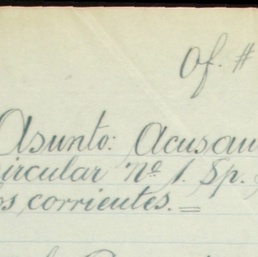 Of. #
Asunto: Acusan
ircular nº 1. Sp.
os corrientes.=